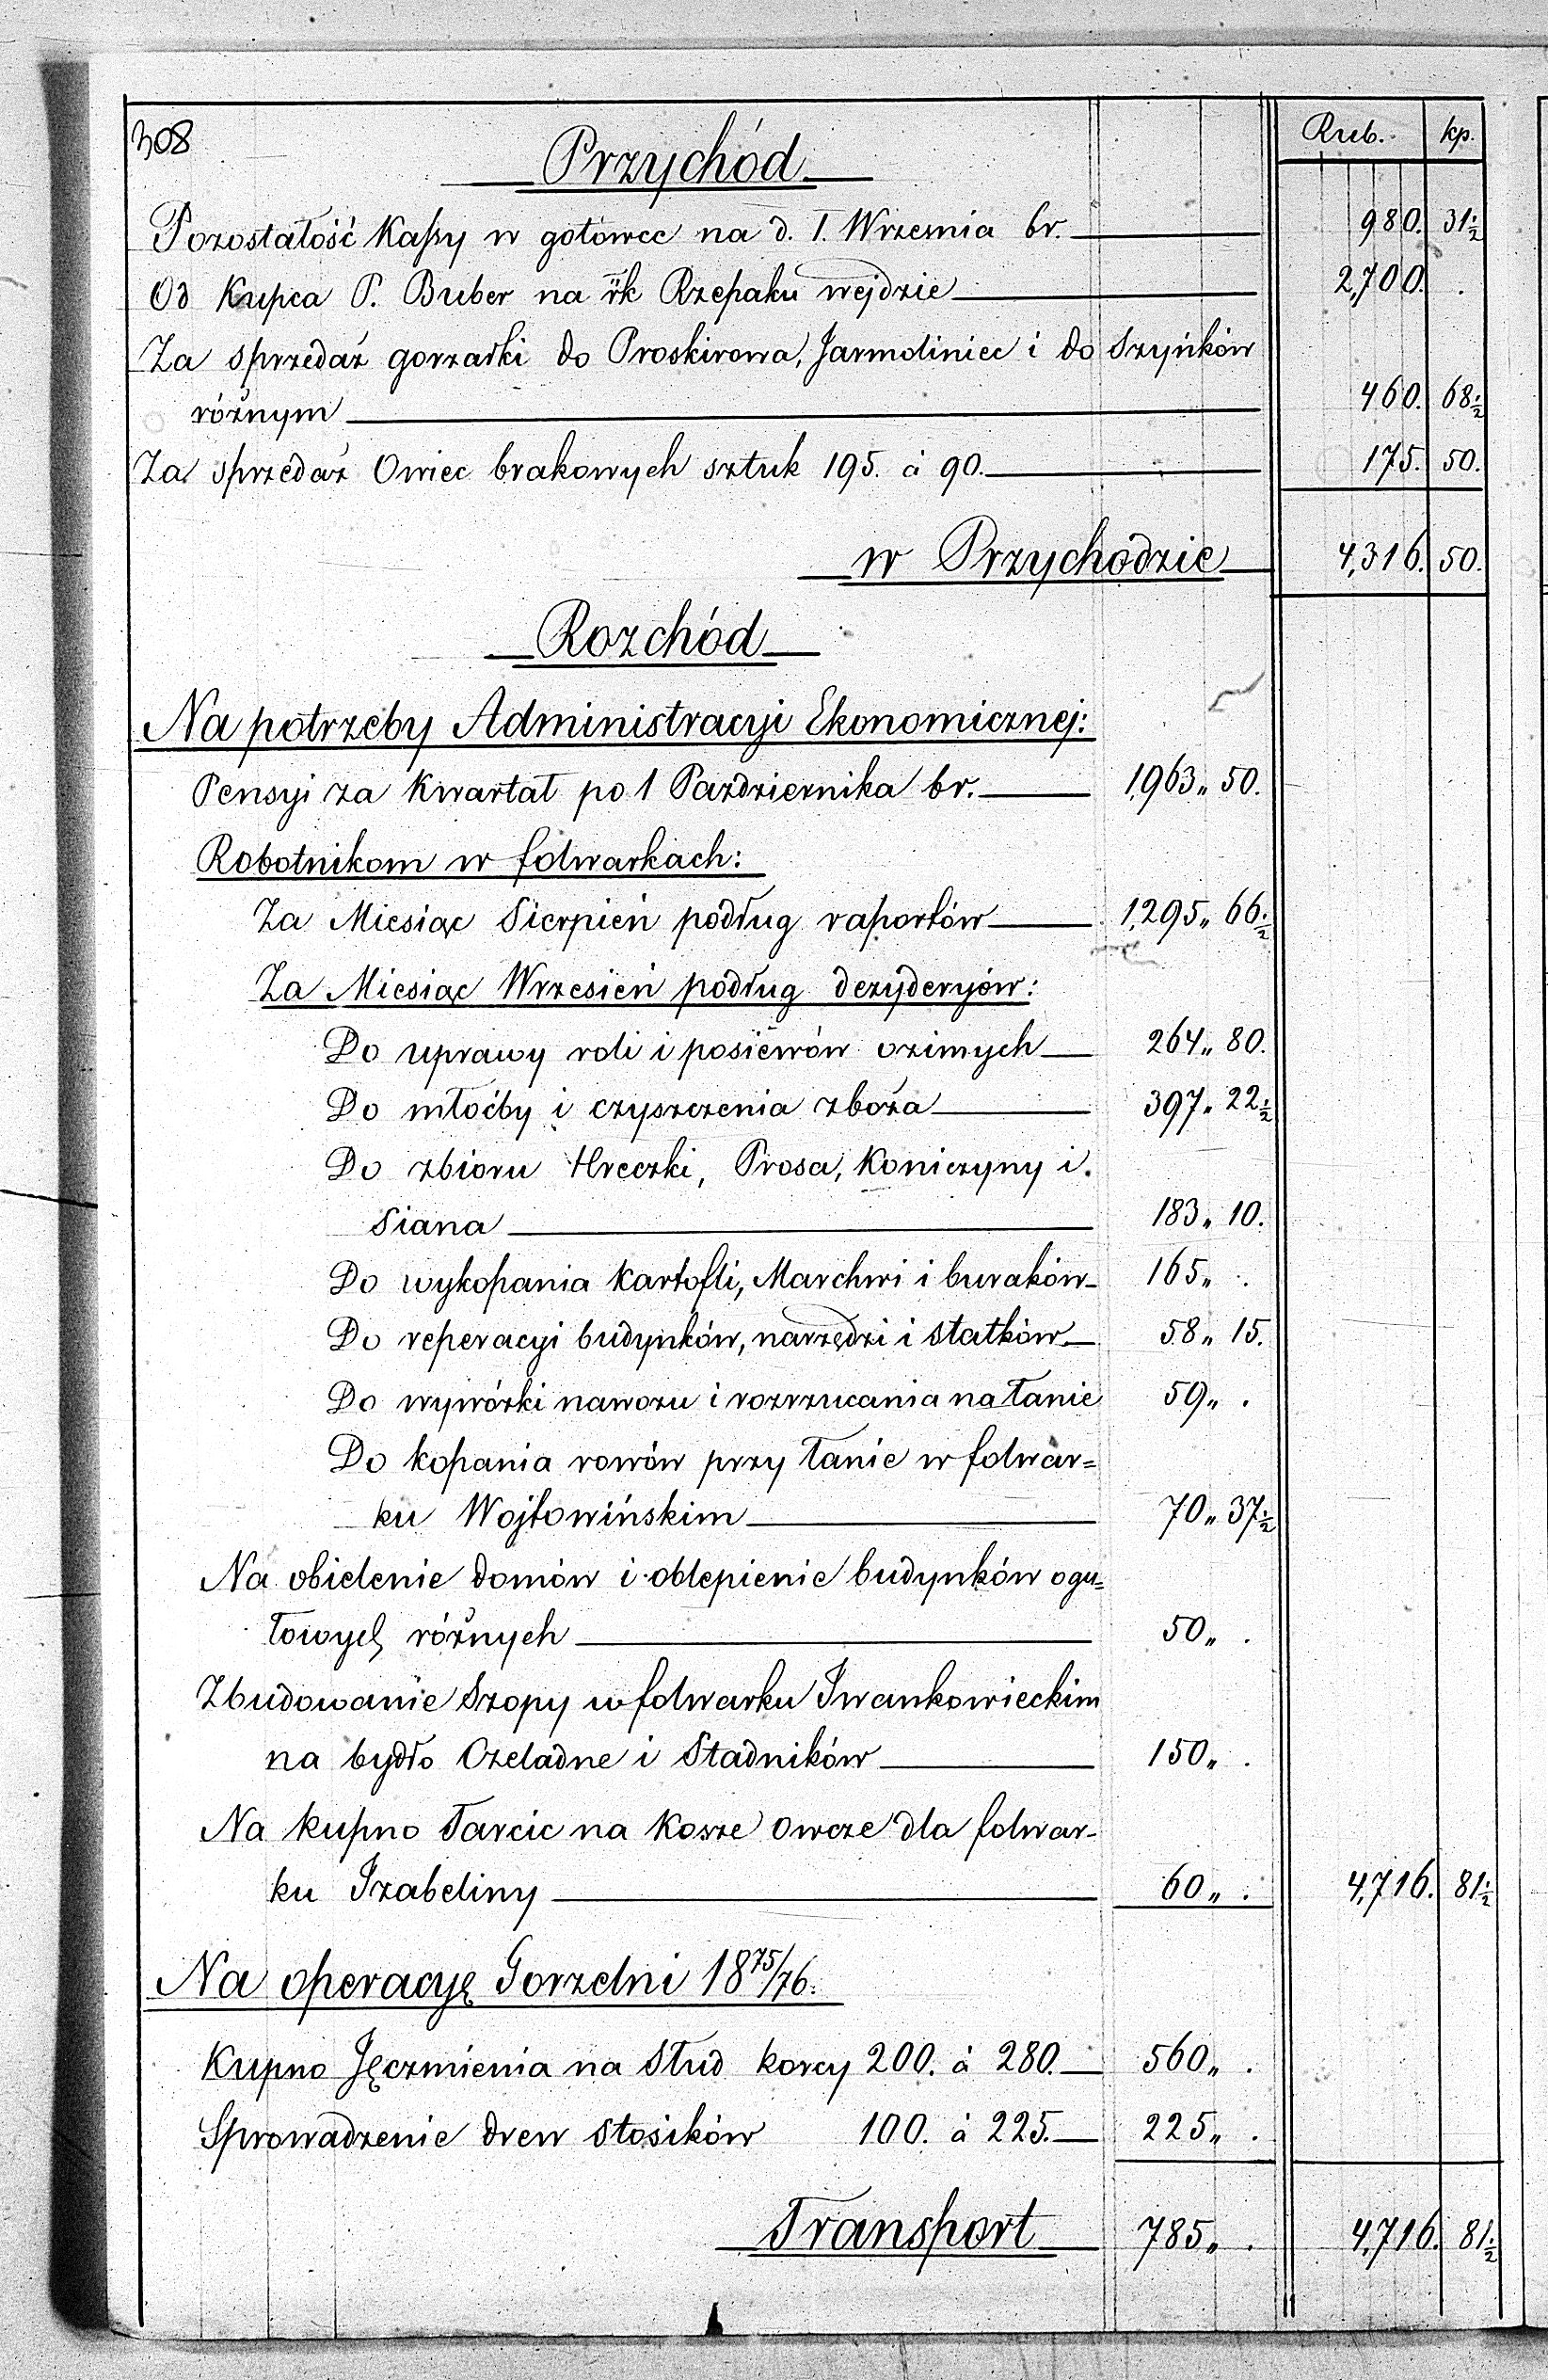 308
Rub. kp.
Przychód
Pozostałość Kaßy w gotowce na d. 1. Wrzesnia br. 980. 31½
Od Kupca P. Buber na r̈k Rzepaku wejdzie 2,700. .
Za sprzedaż gorzałki do Proskirowa, Jarmoliniec i do Szyńków
różnym 460. 68½
Za sprzedaż Owiec brakowych sztuk 195. à 90. 175. 50.
w Przychodzie 4,316. 50.
Rozchód
Na potrzeby Administracyi Ekonomicznej:
Pensyi za Kwartał po 1 Pazdziernika br. 1,963„ 50.
Robotnikom w folwarkach:
Za Miesiąc Sierpień podług raportów 1,295„ 66½
Za Miesiąc Wrzesień podług dezyderyów:
Do uprawy roli i posiewów ozimych 264„ 80.
Do młoćby i czyszczenia zboża 397„ 22½
Do zbioru Hreczki, Prosa, Koniczyny i
Siana 183„ 10.
Do wykopania Kartofli, Marchwi i buraków 165„ .
Do reperacyi budynków, narzędzi i Statków 58„ 15.
Do wywózki nawozu i rozrzucania na łanie 59„ .
Do kopania rowów przy łanie w folwar=
ku Wojtowińskim 70„ 37½
Na obielenie domów i oblepienie budynków ogu=
łowych różnych 50„ .
Zbudowanie Szopy w folwarku Iwankowieckim
na bydło Czeladne i Stadników 150„ .
Na kupno Tarcic na Kosze Owcze dla folwar-
ku Izabeliny 60„ . 4,716. 81½
Na operacyę Gorzelni 18 75/76.
Kupno Jęczmienia na Słud korcy 200. à 280. 560„ .
Sprowadzenie drew Stosików 100. à 225. 225„ .
Transport 785„ . 4,716. 81½